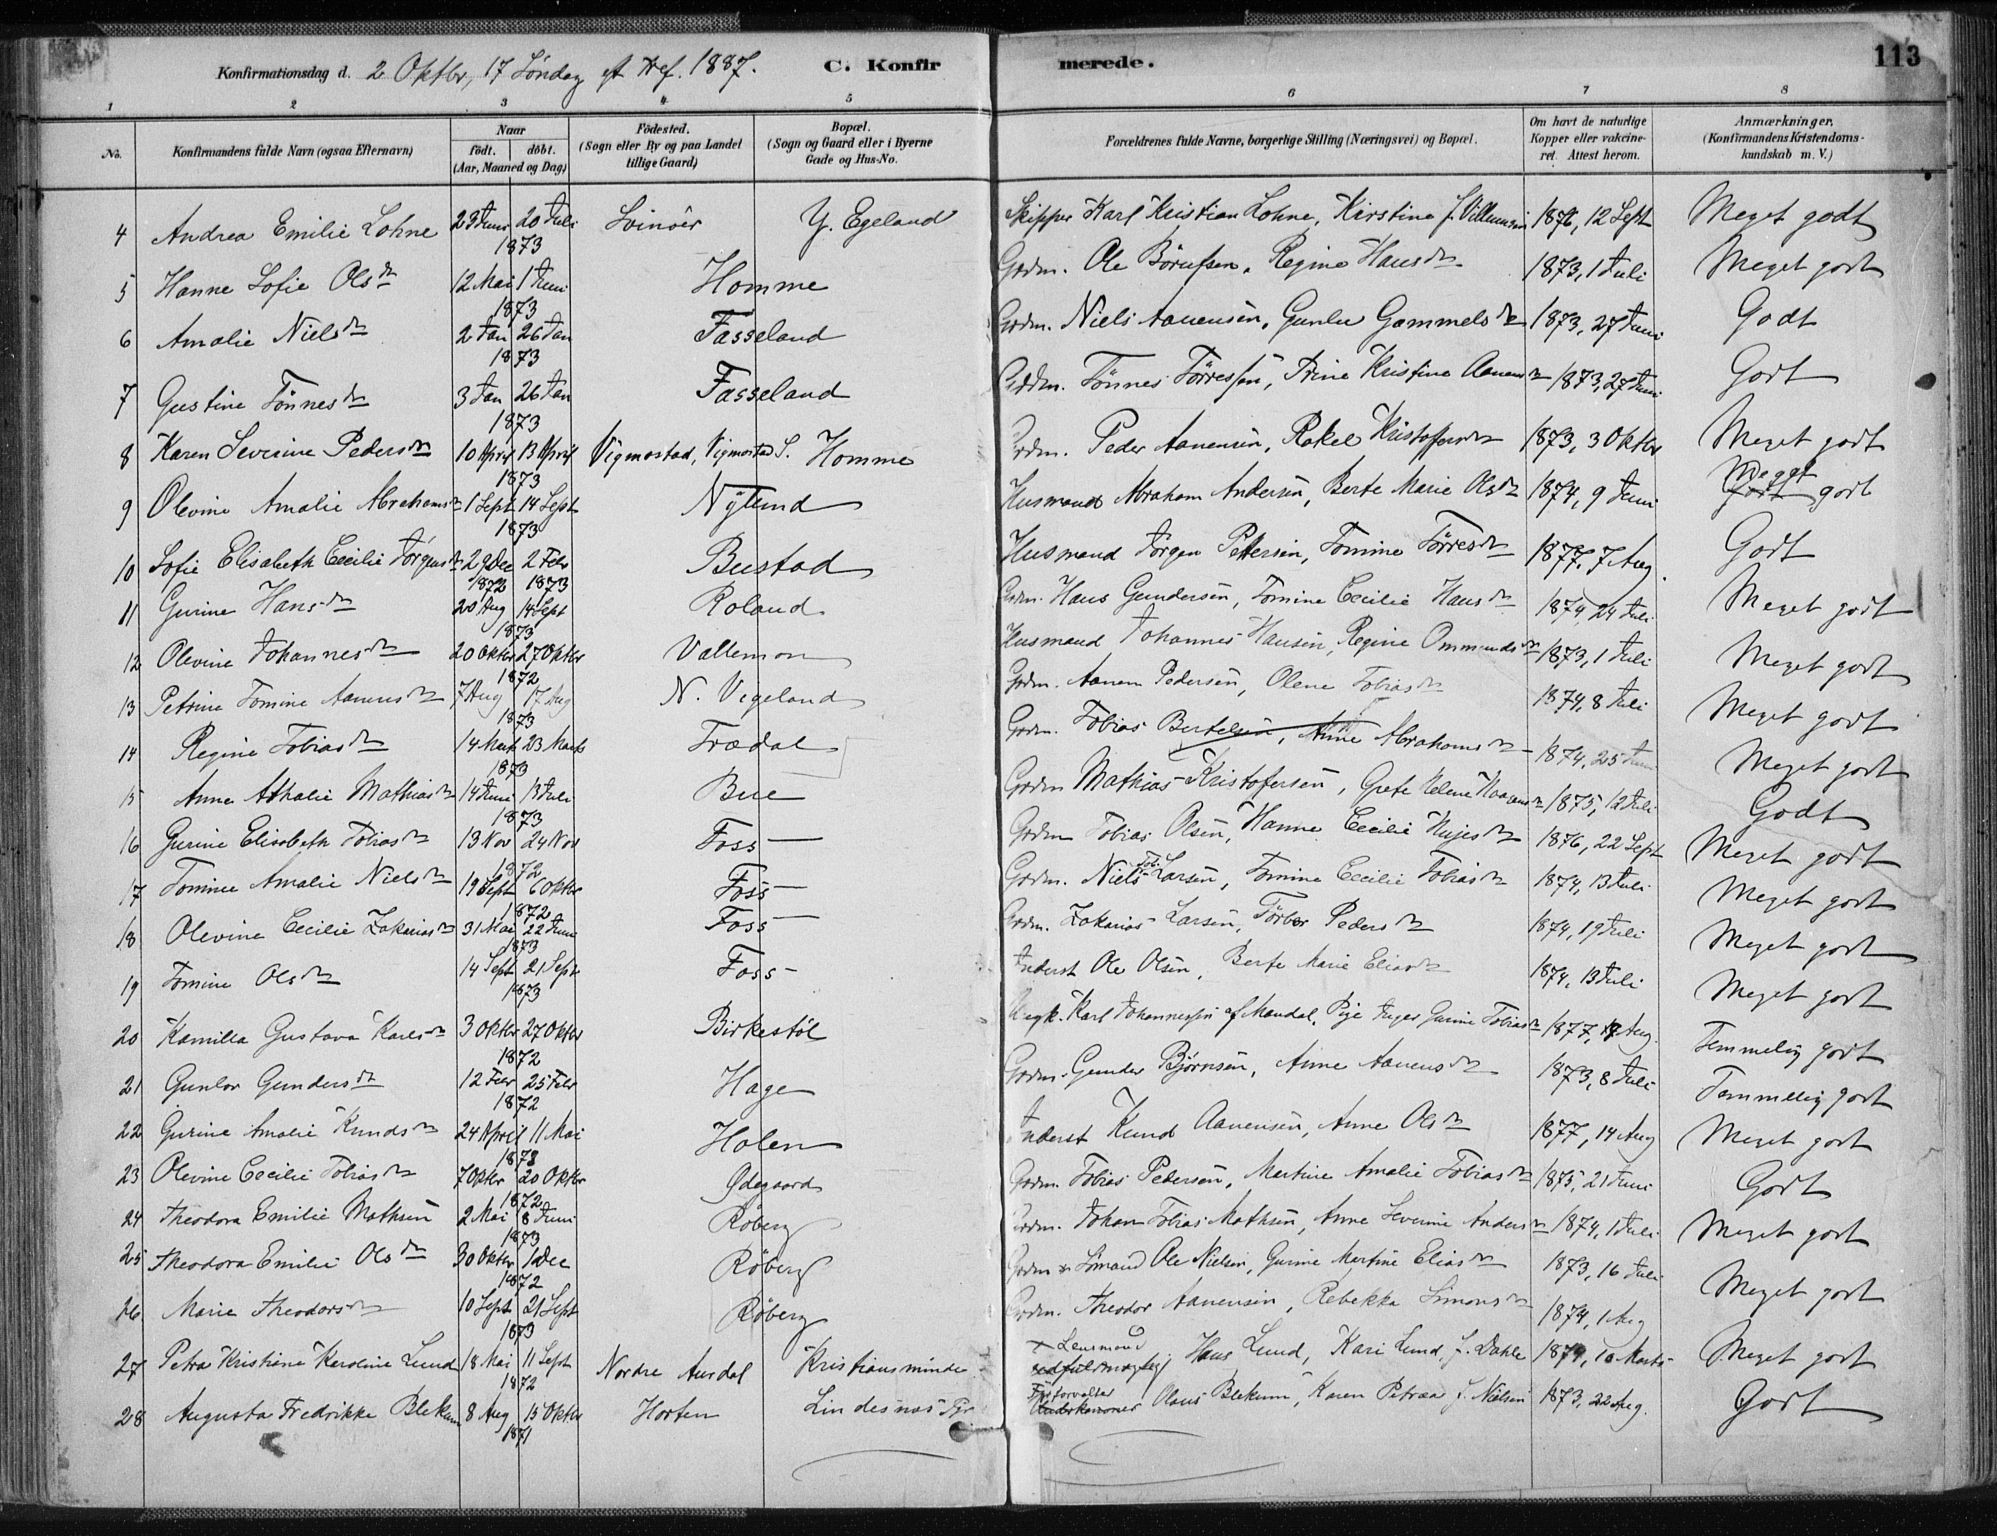 Konfirmationsdag d. 2 Oktbr, 17 Söndag eft Tref. 1887. C. Konfirmerede. 113
1 2 3 4 5 6 7 8
No. Konfirmandens fulde Navn (ogsaa Efternavn) Naar födt. döbt. (Aar, Maaned og Dag) Födested. (Sogn eller By og paa Landet tillige Gaard) Bopæl. (Sogn og Gaard eller i Byerne Gade og Hus-No. Forældrenes fulde Navne, borgerlige Stilling (Næringsvei) og Bopæl. Om havt de naturlige Kopper eller vakcineret. Attest herom. Anmærkninger, (Konfirmandens Kristendomskundskab m. V.)
4 Andrea Emilie Lohne 23 Juni 20 Juli 1873 Svinöer Y. Egeland Skipper Karl Kristian Lohne, Kirstine f. Villumsen 1876, 12 Sept Meget godt
5 Hanne Sofie Olsdr 12 Mai 1 Juni 1873 Homme Grdm. Ole Börufsen, Regine Hansdr 1873, 1 Juli Meget godt
6 Amalie Nielsdr 2 Jan 26 Jan 1873 Fasseland Grdm. Niels Aanensen, Gunlu Gammelsdr 1873, 27 Juni Godt
7 Gustine Tönnesdr 3 Jan 26 Jan 1873 Fasseland Grdm. Tönnes Törresen, Trine Kristine Aanensdr 1873, 27 Juni Godt
8 Karen Severine Pedersdr 10 April 13 April 1873 Vigmostad, Vigmostad S. Homme Grdm. Peder Aanensen, Rakel Kristoffersdr 1873, 3 Oktbr Meget godt
9 Olevine Amalie Abrahamsdr 1 Sept 14 Sept 1873 Nÿlund Husmand Abraham Andersen, Berte Marie Olsdr 1874, 9 Juni Meget godt
10 Sofie Elisabeth Cecilie Jörgensdr 29 Dec 1872 2 Febr 1873 Bustad Husmand Jörgen Pettersen, Tomine Törresdr 1877, 7 Aug. Godt
11 Gurine Hansdr 20 Aug 14 Sept 1873 Roland Grdm. Hans Gundersen, Tomine Cecilie Hansdr 1874, 24 Juli Meget godt
12 Olevine Johannesdr 20 Oktbr 27 Oktbr 1872 Vallemon Husmand Johannes Hansen, Regine Ommundsdr 1873, 1 Juli Meget godt
13 Petrine Tomine Aanensdr 7 Aug 17 Aug 1873 N. Vigeland Grdm. Aanen Pedersen, Olene Tobiasdr 1874, 8 Juli Meget godt
14 Regine Tobiasdr 14 Mark 23 Marts 1873 Trædal Grdm. Tobias Bertelsen, Anne Abrahamsdr 1874, 25 Juni Meget godt
15 Anne Athalie Mathiasdr 14 Juni 13 Juli 1873 Bue Grdm Mathias Kristofersen, Grete Helene Haagensdr 1875, 12 Juli Godt
16 Gurine Elisabeth Tobiasdr 13 Nov 24 Nov 1872 Foss Grdm Tobias Olsen, Hanne Cecilie 1876, 22 Sept Meget godt
17 Tomine Amalie Nielsdr 19 Sept 6 Oktbr 1872 Foss Grdm. Niels Tob. Larsen, Tomine Cecilie Tobiasdr 1874, 13 Juli Meget godt
18 Olevine Cecilie Zakariasdr 31 Mai 22 Juni 1873 Foss Grdm. Zakarias Larsen, Törber Pedersdr 1874, 19 Juli Meget godt
19 Tomine Olsdr 14 Sept 21 Sept 1873 Foss Inderst Ole Olsen, Berte Marie Eliasdr 1874, 13 Juli Meget godt
20 Kamilla Gustava Karlsdr 3 Oktbr 27 Oktbr 1872 Birkestöl Ungk. Karl Johannessen af Mandal, Pige Inger Gurine Tobiasdr 1877, 17 Aug. Temmelig godt
21 Gunlor Gundersdt 12 Febr 25 Febr 1872 Hage Grdm. Gunder Björnsen, Anne Aanensdr 1873, 8 Juli Temmelig godt
22 Gurine Amalie Knudsdr 24 April 11 Mai 1873 Holen Inderst Knud Aanensen, Anne Olsdr 1877, 14 Aug Meget godt
23 Olevine Cecilie Tobiasdr 7 Oktbr 20 Oktbr 1872 Ødegaard Grdm. Tobias Pedersen, Martine Amalie Tobiasdr 1875, 21 Juni Godt
24 Theodora Emilie Mathsen 2 Mai 8 Juni 1873 Röberg Grdm. Johan Tobias Mathsen, Anne Severine Andersdr 1874, 1 Juli Meget godt
25 Theodora Emilie Olsdr 30 Oktbr 1 Dec 1872 Röberg Grdm & Sömand Ole Nielsen, Gurine Martine Eliasdr 1873, 16 Juli Meget godt
26 Marie Theodorsdr 10 Sept 21 Sept 1873 Röberg Grdm. Theodor Aanensen, Rebekka Simonsdr 1874, 1 Aug Meget godt
27 Petra Kristiane Karoline Lund 18 Mai 11 Sept 1872 Nordre Aurdal Kristiansminde Lensmand Hans Lund, Kari Lund, f. Dahle 1879, 10 Marts Meget godt
28 Augusta Fredrikke Blekum 8 Aug 15 Oktbr 1871 Horten Lindesnæs Fyr Fyrforvalter Olaus Blekum, Karen Petræa f. Nielsen 1873, 22 Aug. Godt